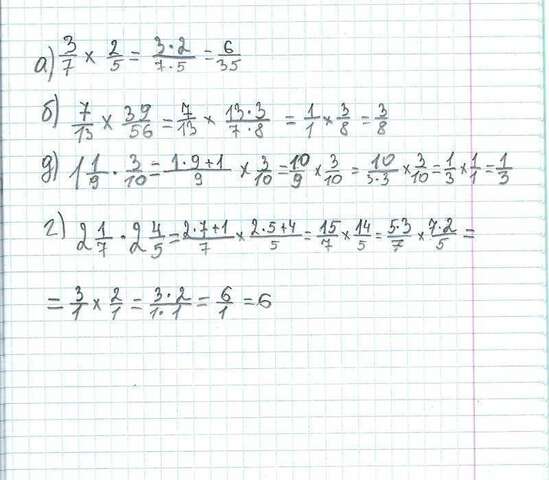 а) 3/7 × 2/5 = 3·2/7·5 = 6/35
б) 7/13 × 39/56 = 7/13 × 13·3/7·8 = 1/1 × 3/8 = 3/8
д) 1 1/9 · 3/10 = 1·9+1/9 × 3/10 = 10/9 × 3/10 = 10/3·3 × 3/10 = 1/3 × 1/1 = 1/3
г) 2 1/7 · 2 4/5 = 2·7+1/7 × 2·5+4/5 = 15/7 × 14/5 = 5·3/7 × 7·2/5 =
= 3/1 × 2/1 = 3·2/1·1 = 6/1 = 6